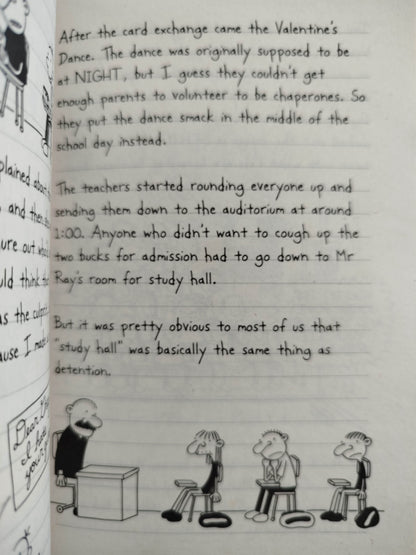 After the card exchange came the Valentine's
Dance. The dance was originally supposed to be
at NIGHT, but I guess they couldn't get
enough parents to volunteer to be chaperones. So
they put the dance smack in the middle of the
school day instead.
The teachers started rounding everyone up and
sending them down to the auditorium at around
1:00. Anyone who didn't want to cough up the
two bucks for admission had to go down to Mr
Ray's room for study hall.
But it was pretty obvious to most of us that
"study hall" was basically the same thing as
detention.
plained about
and then
ure out
uld think
as the
ause I
Dear
I
you